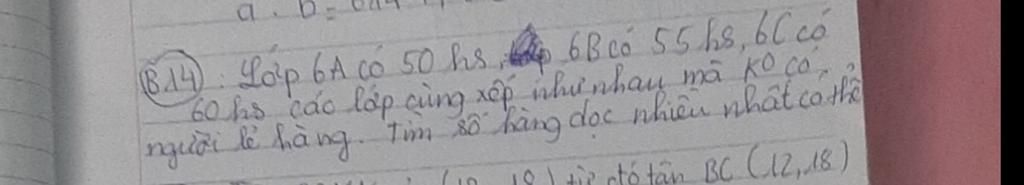 a. b =
B14). Lớp 6A có 50 hs, 6B có 55 hs, 6C có
60 hs các lớp cùng xếp như nhau mà ko có
người lẻ hàng. Tìm số hàng dọc nhiều nhất có thể
BC (12, 18)